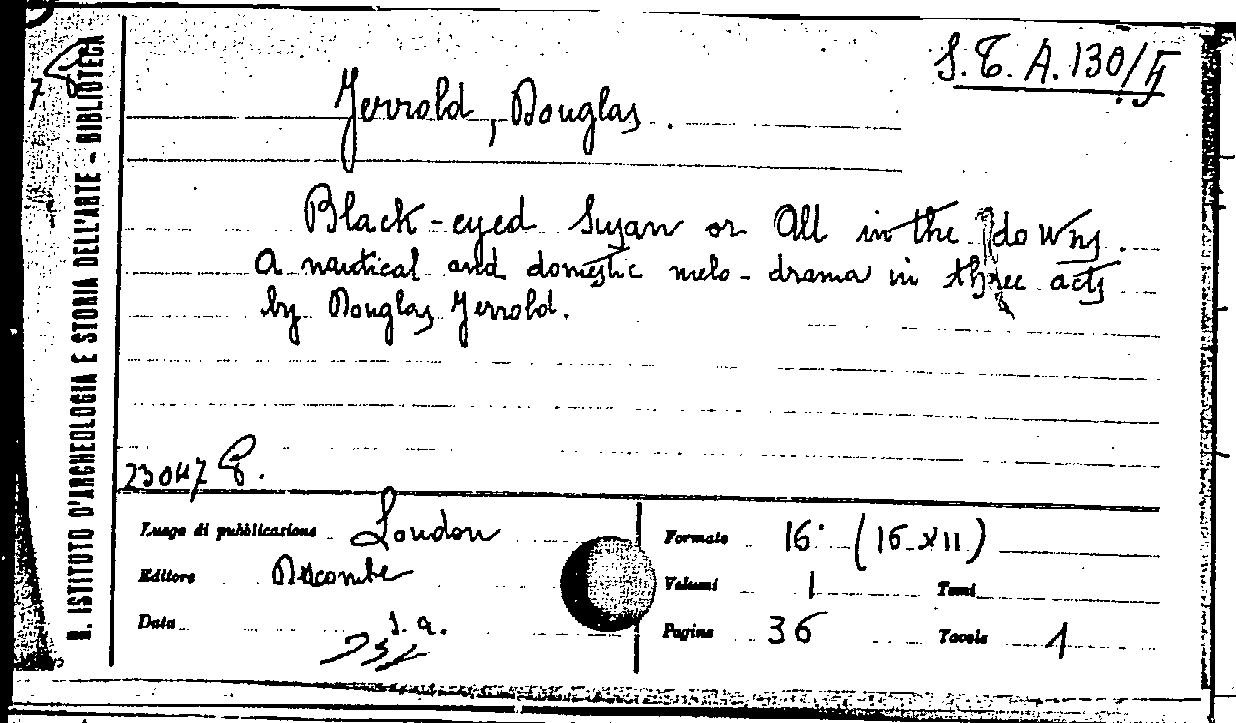 S. T. A. 130/
Jerrold, Douglas.
Black-eyed Susan or All in the downs.
A nautical and domestic melo-drama in three acts
by Douglas Jerrold.
23047
R. ISTITUTO D'ARCHEOLOGIA E STORIA DELL'ARTE - BIBLIOTECA
Luogo di pubblicazione London
Editore
Data s. a.
Formato 16° (16-XII)
Volumi 1 Tomi
Pagine 36 Tavole 1